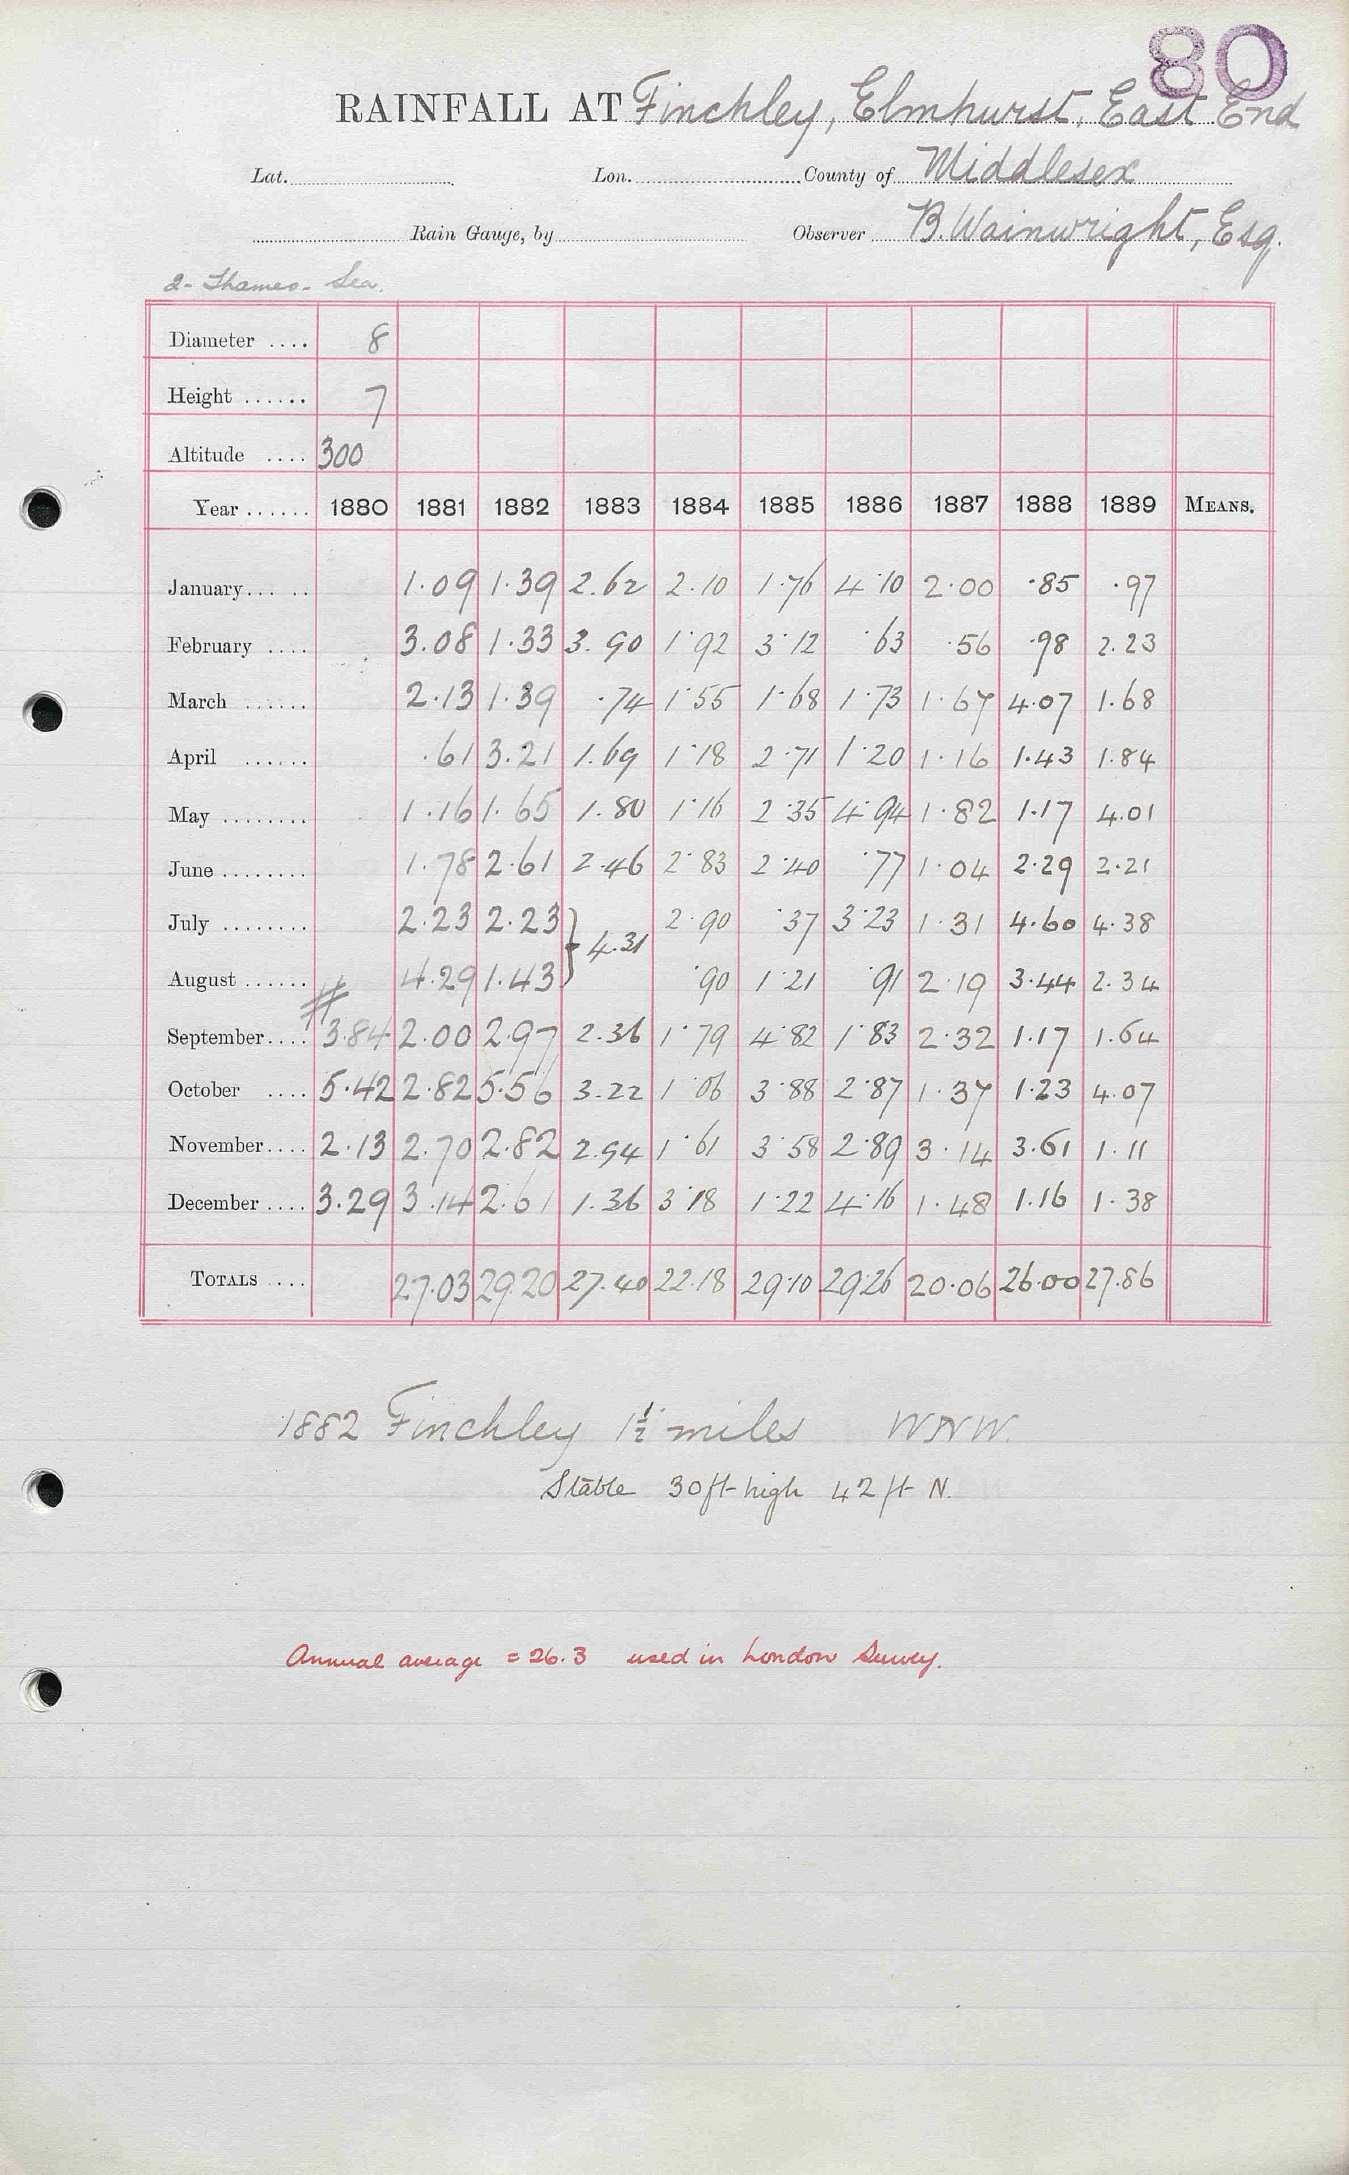 80
RAINFALL AT Finchley, Elmhurst, East End
Lat. Lon. County of Middlesex
Rain Gauge, by Observer B. Wainwright, Esq.
2- Thames - Sea.
Diameter .... 8
Height ...... 7
Altitude .... 300
Year ...... 1880 1881 1882 1883 1884 1885 1886 1887 1888 1889 MEANS.
January...... 1.09 1.39 2.62 2.10 1.76 4.10 2.00 .85 .97
February .... 3.08 1.33 3.90 1.92 3.12 .63 .56 .98 2.23
March ...... 2.13 1.39 .74 1.55 1.68 1.73 1.67 4.07 1.68
April ...... .61 3.21 1.69 1.18 2.71 1.20 1.16 1.43 1.84
May ........ 1.16 1.65 1.80 1.16 2.35 4.94 1.82 1.17 4.01
June ........ 1.78 2.61 2.46 2.83 2.40 .77 1.04 2.29 2.21
July ........ 2.23 2.23 } 4.31 2.90 .37 3.23 1.31 4.60 4.38
August ...... 4.29 1.43 .90 1.21 .91 2.19 3.44 2.34
September.... # 3.84 2.00 2.97 2.36 1.79 4.82 1.83 2.32 1.17 1.64
October .... 5.42 2.82 5.56 3.22 1.06 3.88 2.87 1.37 1.23 4.07
November.... 2.13 2.70 2.82 2.94 1.61 3.58 2.89 3.14 3.61 1.11
December .... 3.29 3.14 2.61 1.36 3.18 1.22 4.16 1.48 1.16 1.38
TOTALS .... 27.03 29.20 27.40 22.18 29.10 29.26 20.06 26.00 27.86
1882 Finchley 1½ miles WNW.
Stable 30 ft high 42 ft N.
Annual average = 26.3 used in London Survey.